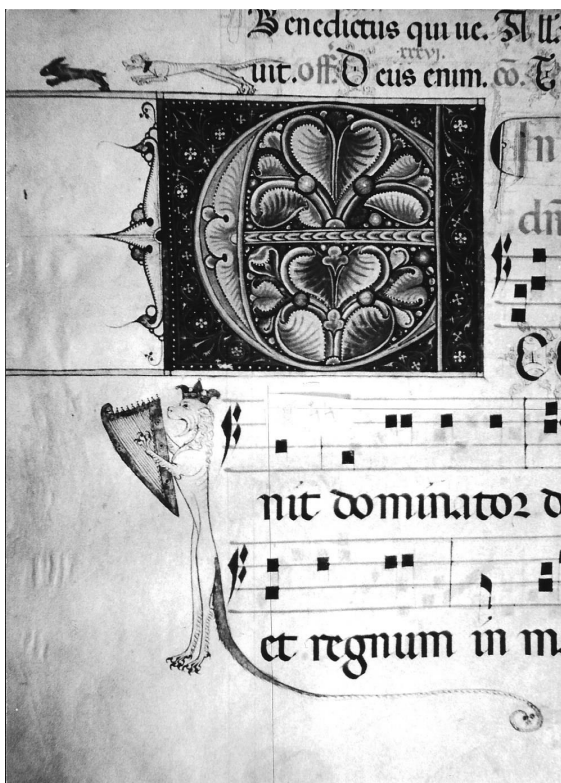 Benedictus qui ue. All
xxxvi.
uit. off. Deus enim. cō.
E
In
dn̄
Ec
nit dominator d
et regnum in m